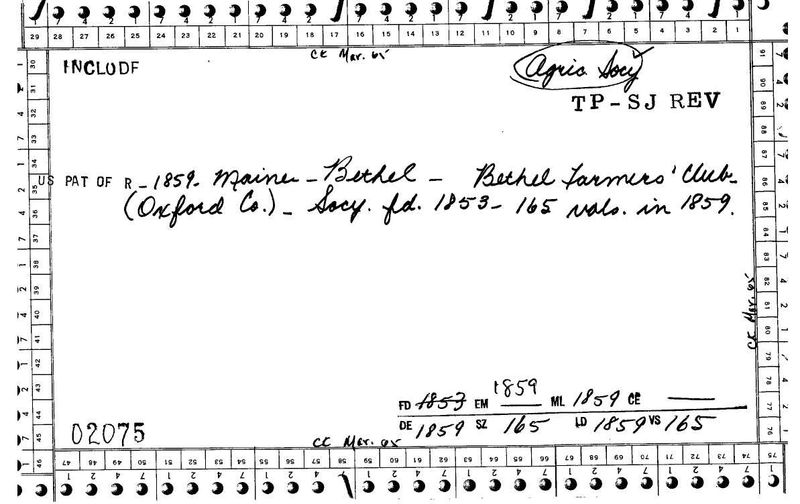 29 28 27 26 25 24 23 22 21 20 19 18 17 16 15 14 13 12 11 10 9 8 7 6 5 4 3 2 1
CK Mar. 65
INCLUDE
Agric Socy
TP-SJ REV
US PAT OF R - 1859 - Maine - Bethel - Bethel Farmers' Club -
(Oxford Co.) - Socy. fd. 1853 - 165 vols. in 1859.
CK Mar. 65
FD 1853 EM 1859 ML 1859 CE
DE 1859 SZ 165 LD 1859 VS 165
02075
CK Mar. 65
30 31 32 33 34 35 36 37 38 39 40 41 42 43 44 45 46
91 90 89 88 87 86 85 84 83 82 81 80 79 78 77 76 75
47 48 49 50 51 52 53 54 55 56 57 58 59 60 61 62 63 64 65 66 67 68 69 70 71 72 73 74 75